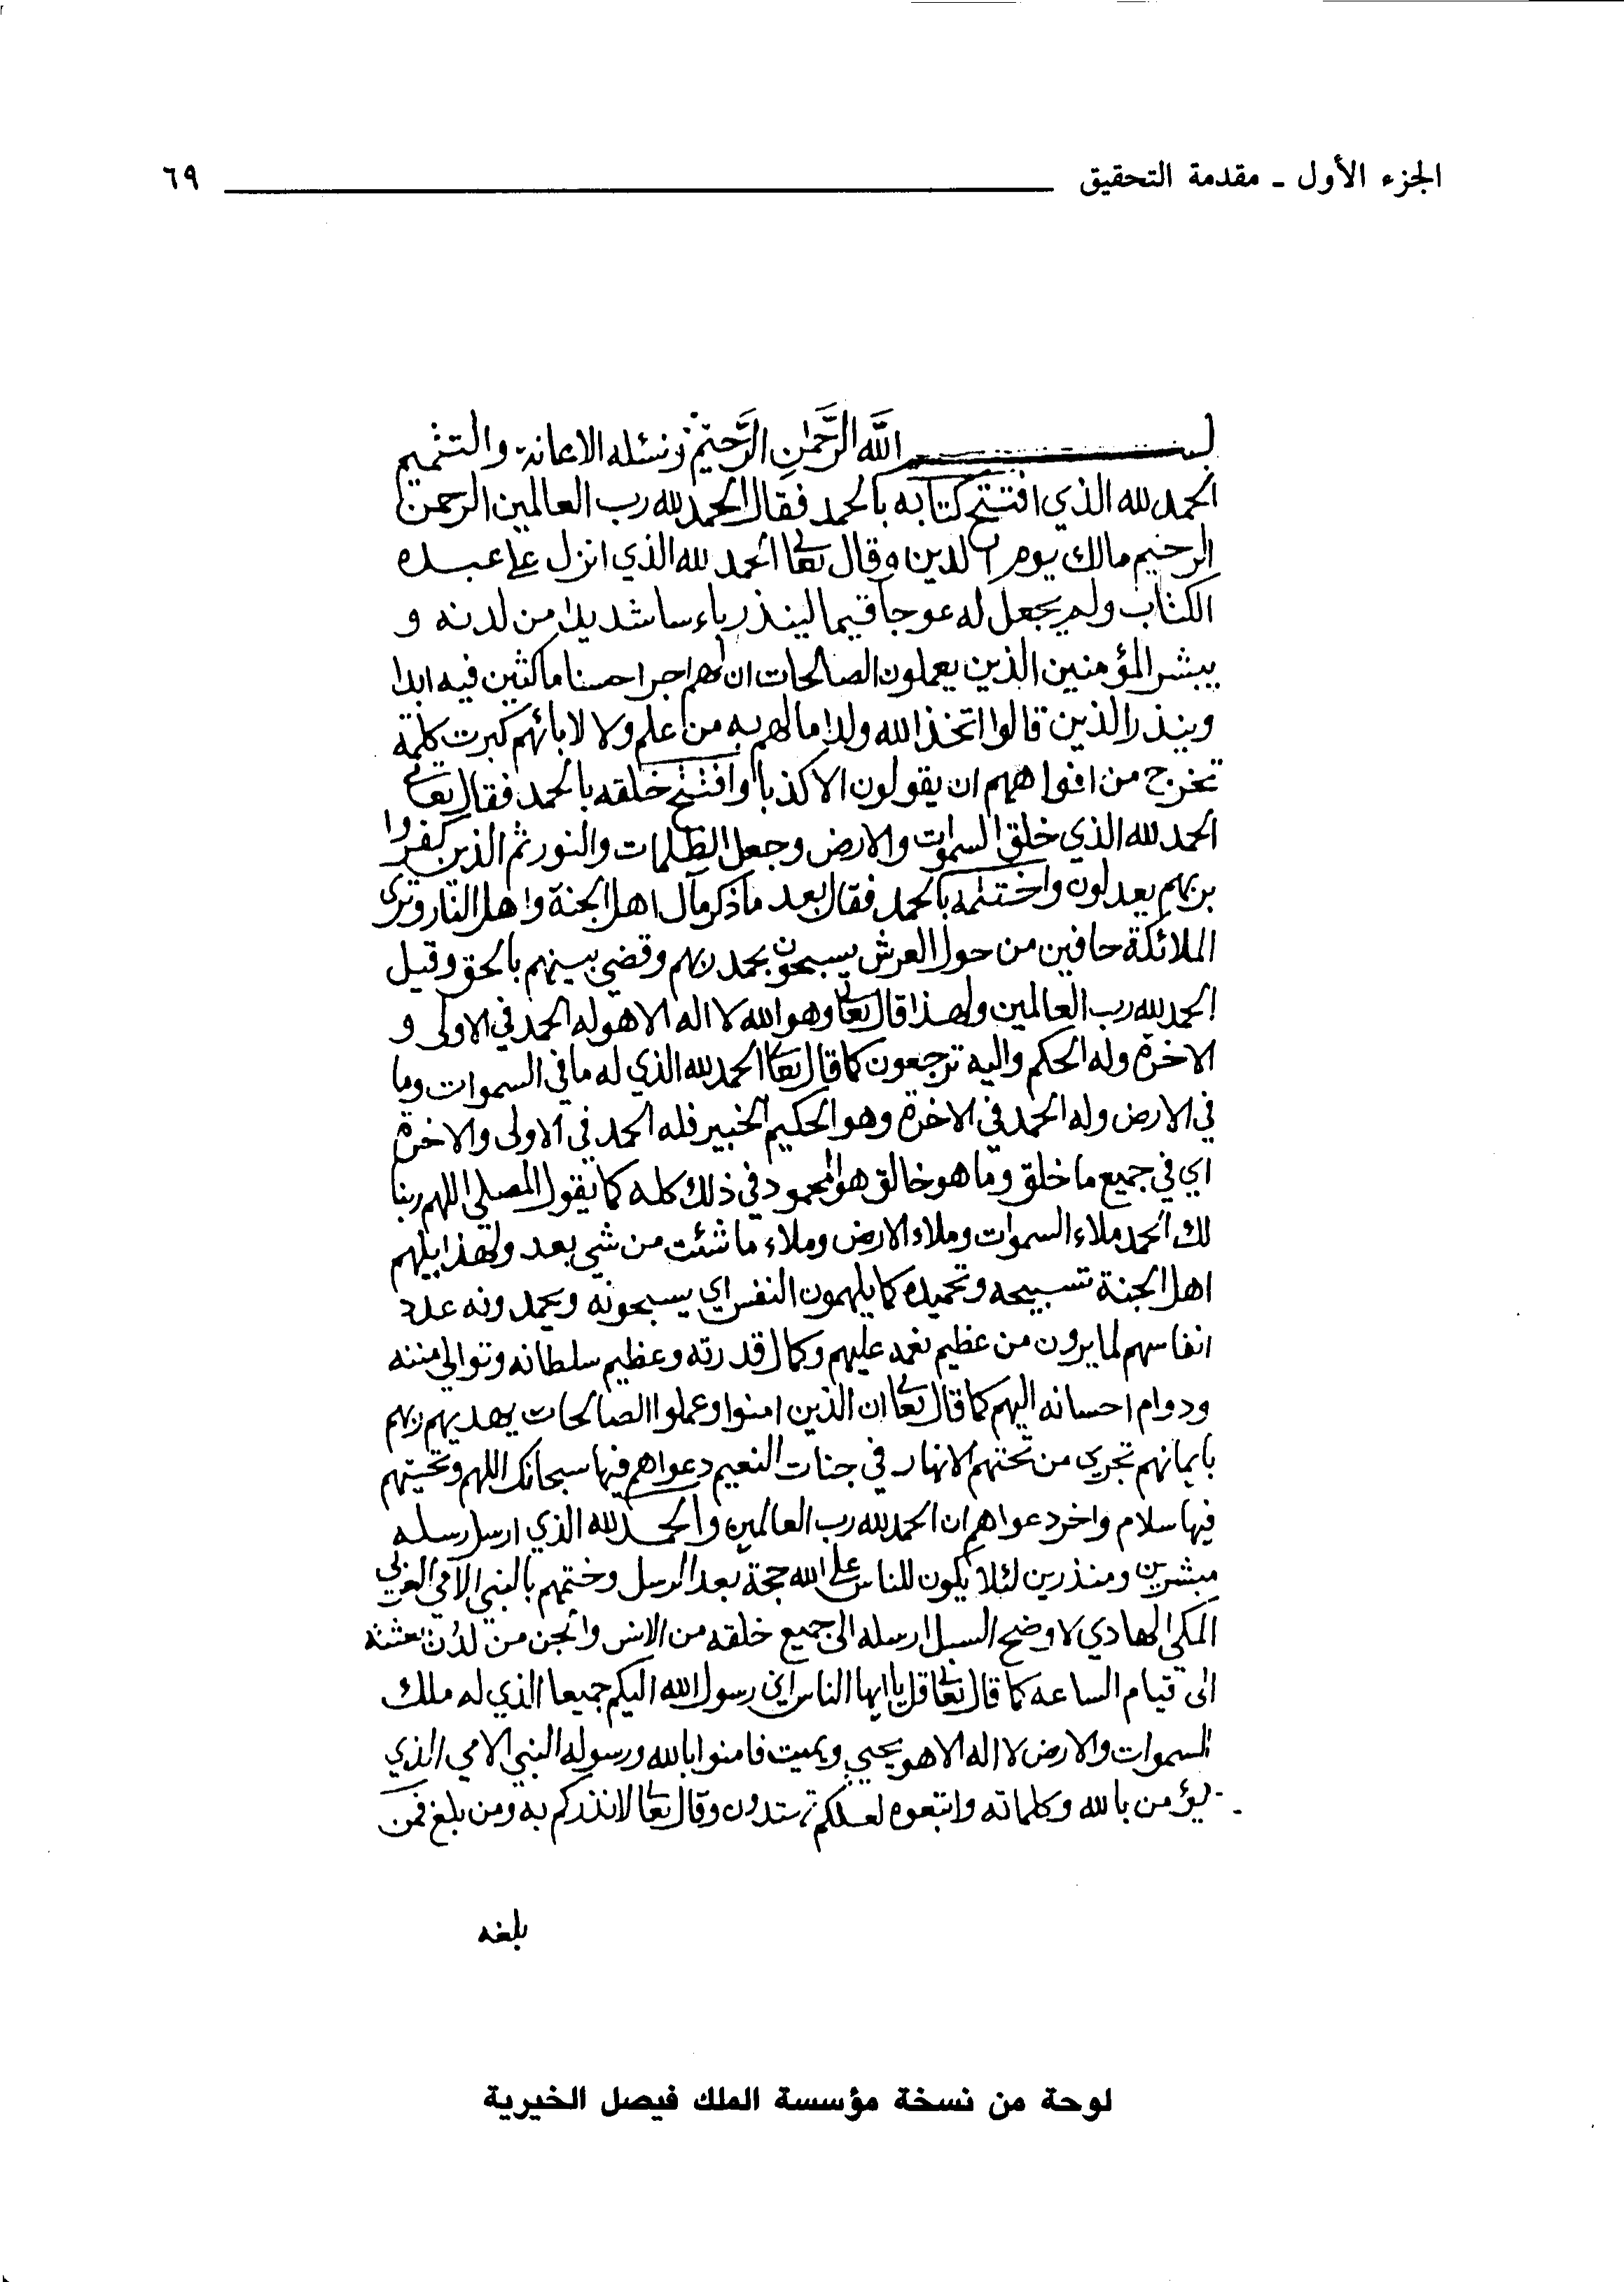 الجزء الأول ـ مقدمة التحقيق ٦٩
بسم الله الرَّحْمٰنِ الرَّحِيمِ ونسئله الاعانة والتتميم
الحمد لله الذي افتتح كتابه بالحمد فقال الحمد لله رب العالمين الرحمن
الرحيم مالك يوم الدين وقال تعالى الحمد لله الذي انزل على عبده
الكتاب ولم يجعل له عوجا قيما لينذر باءسا شديدا من لدنه و
يبشر المؤمنين الذين يعملون الصالحات ان لهم اجرا حسنا ماكثين فيه ابدا
وينذر الذين قالوا اتخذ الله ولدا مالهم به من علم ولا لابائهم كبرت كلمة
تخرج من افواههم ان يقولون الا كذبا وافتتح خلقه بالحمد فقال تعالى
الحمد لله الذي خلق السموات والارض وجعل الظلمات والنور ثم الذين كفروا
بربهم يعدلون واختتمه بالحمد فقال بعد ماذكر مآل اهل الجنة واهل النار وترى
الملائكة حافين من حول العرش يسبحون بحمد ربهم وقضي بينهم بالحق وقيل
الحمد لله رب العالمين ولهذا قال تعالى وهو الله لا اله الا هو له الحمد في الاولى و
الاخرة وله الحكم واليه ترجعون كما قال تعالى الحمد لله الذي له ما في السموات وما
في الارض وله الحمد في الاخرة وهو الحكيم الخبير فله الحمد في الاولى والاخرة
اي في جميع ما خلق وما هو خالق هو المحمود في ذلك كله كما يقول المصلي اللهم ربنا
لك الحمد ملاء السموات وملاء الارض وملاء ما شئت من شي بعد ولهذا يلهم
اهل الجنة تسبيحه وتحميده كما يلهمون النفس اي يسبحونه ويحمدونه عدد
انفاسهم لما يرون من عظيم نعمه عليهم وكمال قدرته وعظيم سلطانه وتوالي مننه
ودوام احسانه اليهم كما قال تعالى ان الذين امنوا وعملوا الصالحات يهديهم ربهم
بايمانهم تجري من تحتهم الانهار في جنات النعيم دعواهم فيها سبحانك اللهم وتحيتهم
فيها سلام واخر دعواهم ان الحمد لله رب العالمين والحمد لله الذي ارسل رسله
مبشرين ومنذرين لئلا يكون للناس على الله حجة بعد الرسل وختمهم بالنبي الامي العربي
المكي الهادي لاوضح السبل ارسله الى جميع خلقه من الانس والجن من لدن بعثته
الى قيام الساعه كما قال تعالى قل يا ايها الناس اني رسول الله اليكم جميعا الذي له ملك
السموات والارض لا اله الا هو يحيي ويميت فامنوا بالله ورسوله النبي الامي الذي
يؤمن بالله وكلماته واتبعوه لعلكم تهتدون وقال تعالى لانذركم به ومن بلغ فمن
بلغه
لوحة من نسخة مؤسسة الملك فيصل الخيرية